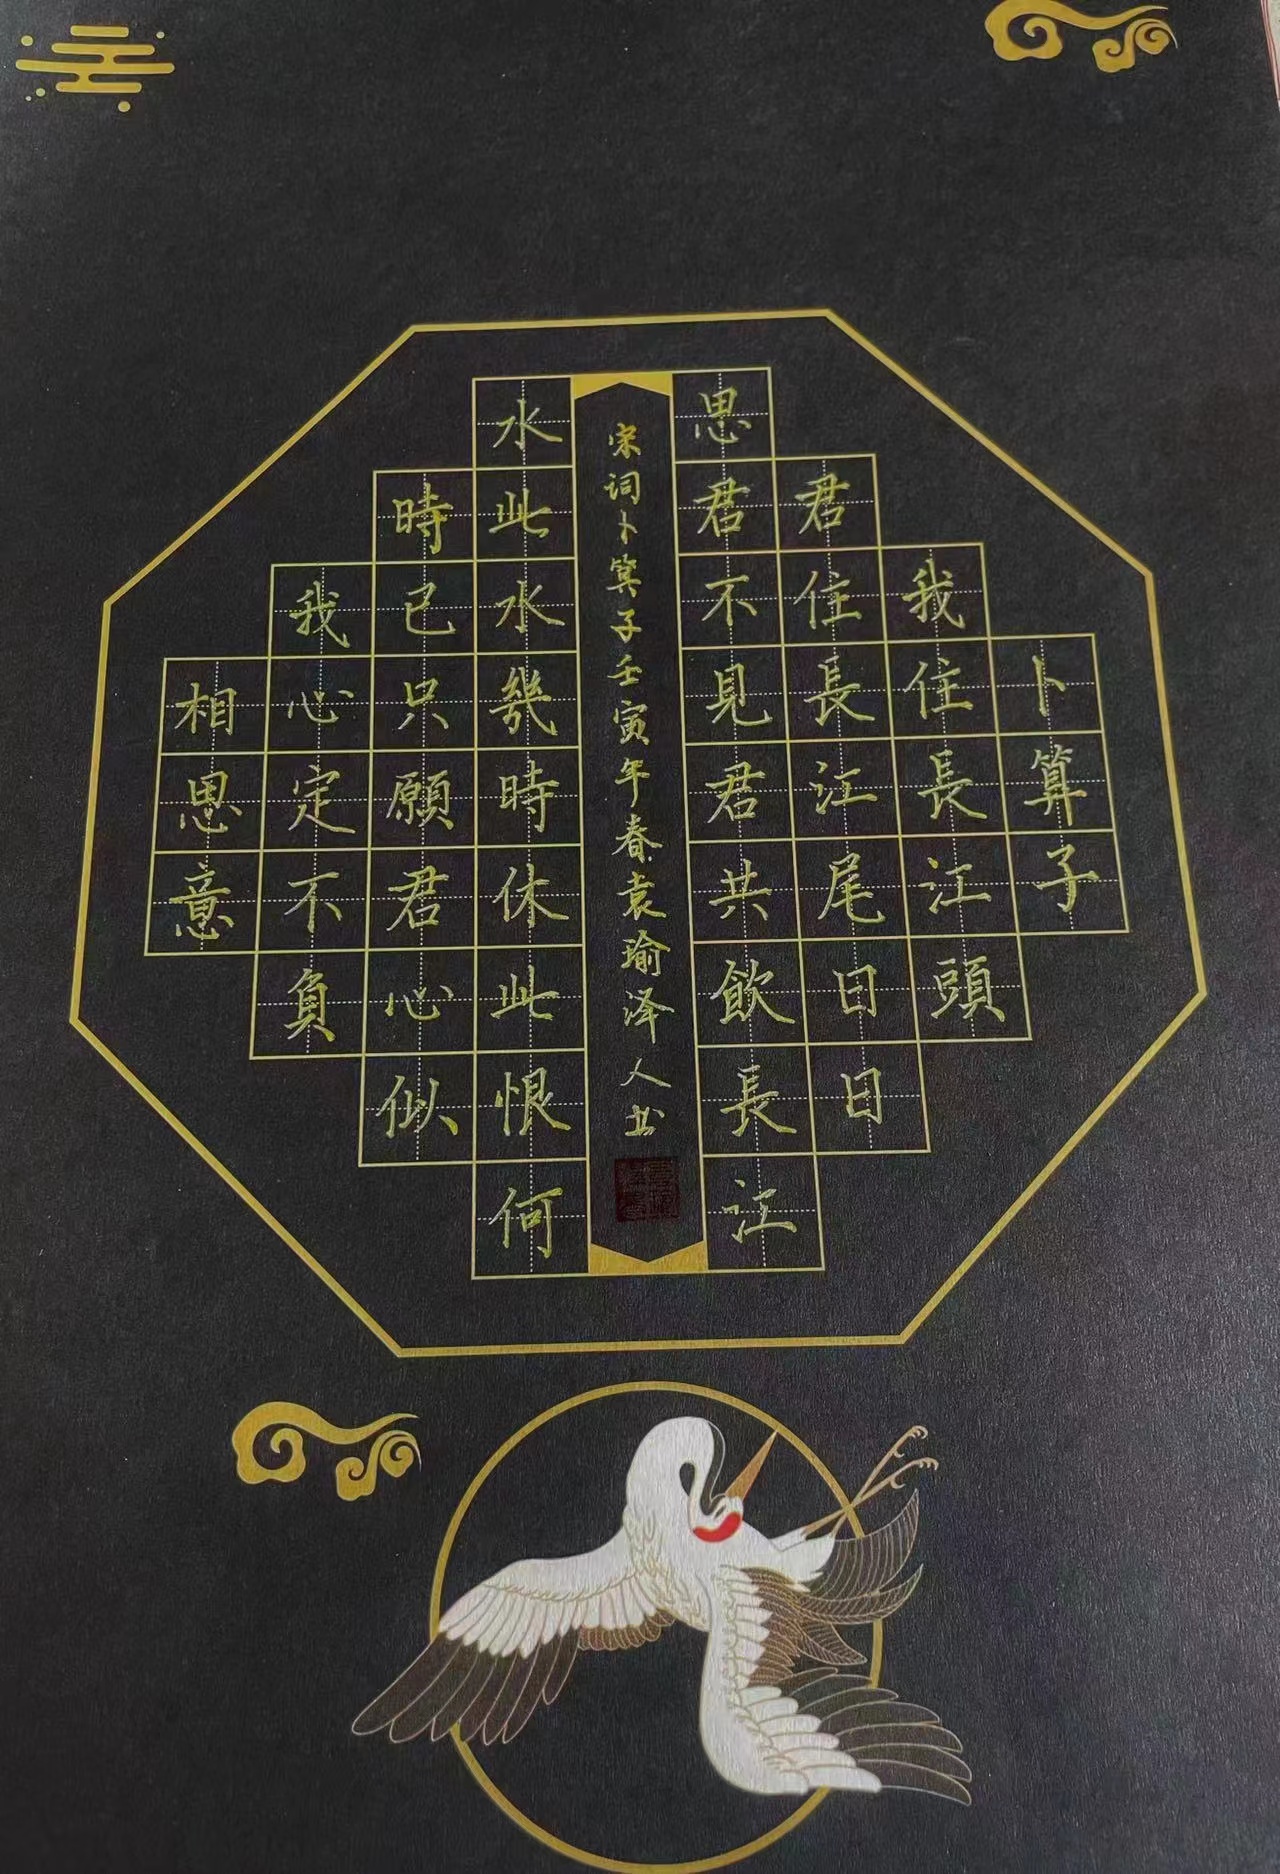 卜算子
我住長江頭
君住長江尾日日
思君不見君共飲長江
水此水幾時休此恨何
時已只願君心似
我心定不負
相思意
宋词卜筭子壬寅年春袁瑜泽人书